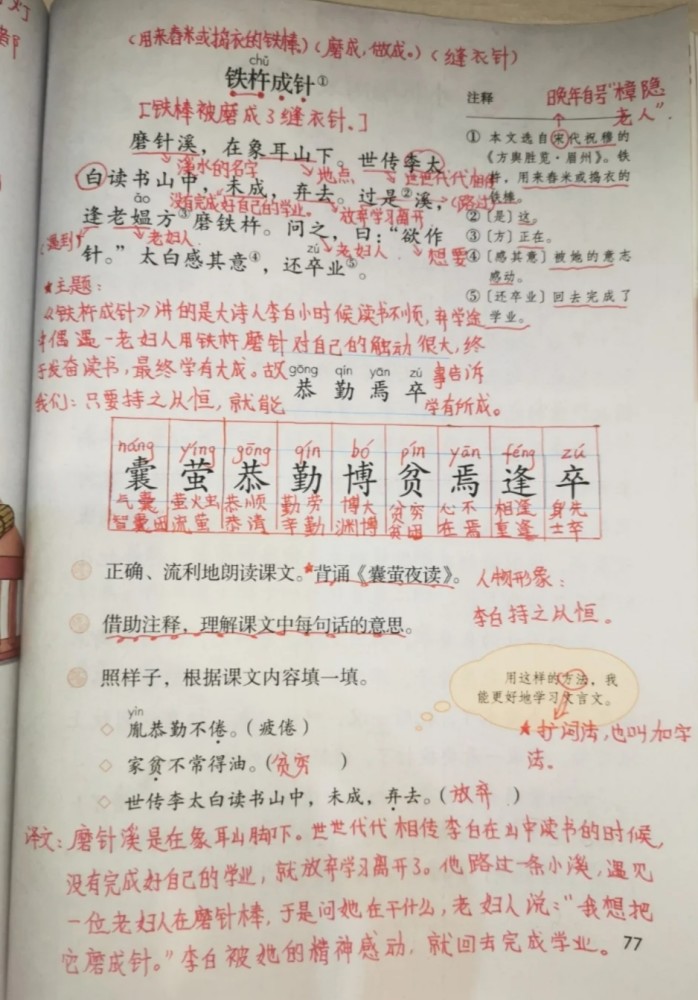 (用来舂米或捣衣的铁棒)(磨成,做成。)(缝衣针)
chǔ
铁杵成针①
[铁棒被磨成了缝衣针。]
磨针溪,在象耳山下。世传李太
溪水的名字 地点 世世代代相传
白读书山中,未成,弃去。过是②溪,
没有完成好自己的学业。 放弃学习离开 (路过)
ǎo
逢老媪方③磨铁杵。问之,曰:“欲作
遇到 老妇人 老妇人 想要
zú
针。”太白感其意④,还卒业⑤。
注释
晚年自号“樟隐
老人”.
① 本文选自宋代祝穆的
《方舆胜览·眉州》。铁
杵,用来舂米或捣衣的
铁棒。
②〔是〕这。
③〔方〕正在。
④〔感其意〕被她的意志
感动。
⑤〔还卒业〕回去完成了
学业。
★主题:
《铁杵成针》讲的是大诗人李白小时候读书不顺,弃学途
中偶遇一老妇人用铁杵磨针对自己的触动很大,终
于发奋读书,最终学有大成。故事告诉
我们:只要持之以恒,就能学有所成。
gōng qín yān zú
恭 勤 焉 卒
náng yíng gōng qín bó pín yān féng zú
囊 萤 恭 勤 博 贫 焉 逢 卒
气囊 萤火虫 恭顺 勤劳 博大 贫穷 心不 相逢 身先
智囊团 流萤 恭清 辛勤 渊博 贫困 在焉 重逢 士卒
正确、流利地朗读课文。★背诵《囊萤夜读》。
人物形象:
李白持之以恒。
借助注释,理解课文中每句话的意思。
照样子,根据课文内容填一填。
用这样的方法,我
能更好地学习文言文。
★扩词法,也叫加字
法。
yìn
◇ 胤恭勤不倦。(疲倦)
◇ 家贫不常得油。(贫穷)
◇ 世传李太白读书山中,未成,弃去。(放弃)
译文:磨针溪是在象耳山脚下。世世代代相传李白在山中读书的时候,
没有完成好自己的学业,就放弃学习离开了。他路过一条小溪,遇见
一位老妇人在磨针棒,于是问她在干什么,老妇人说:“我想把
它磨成针。”李白被她的精神感动,就回去完成学业。
77